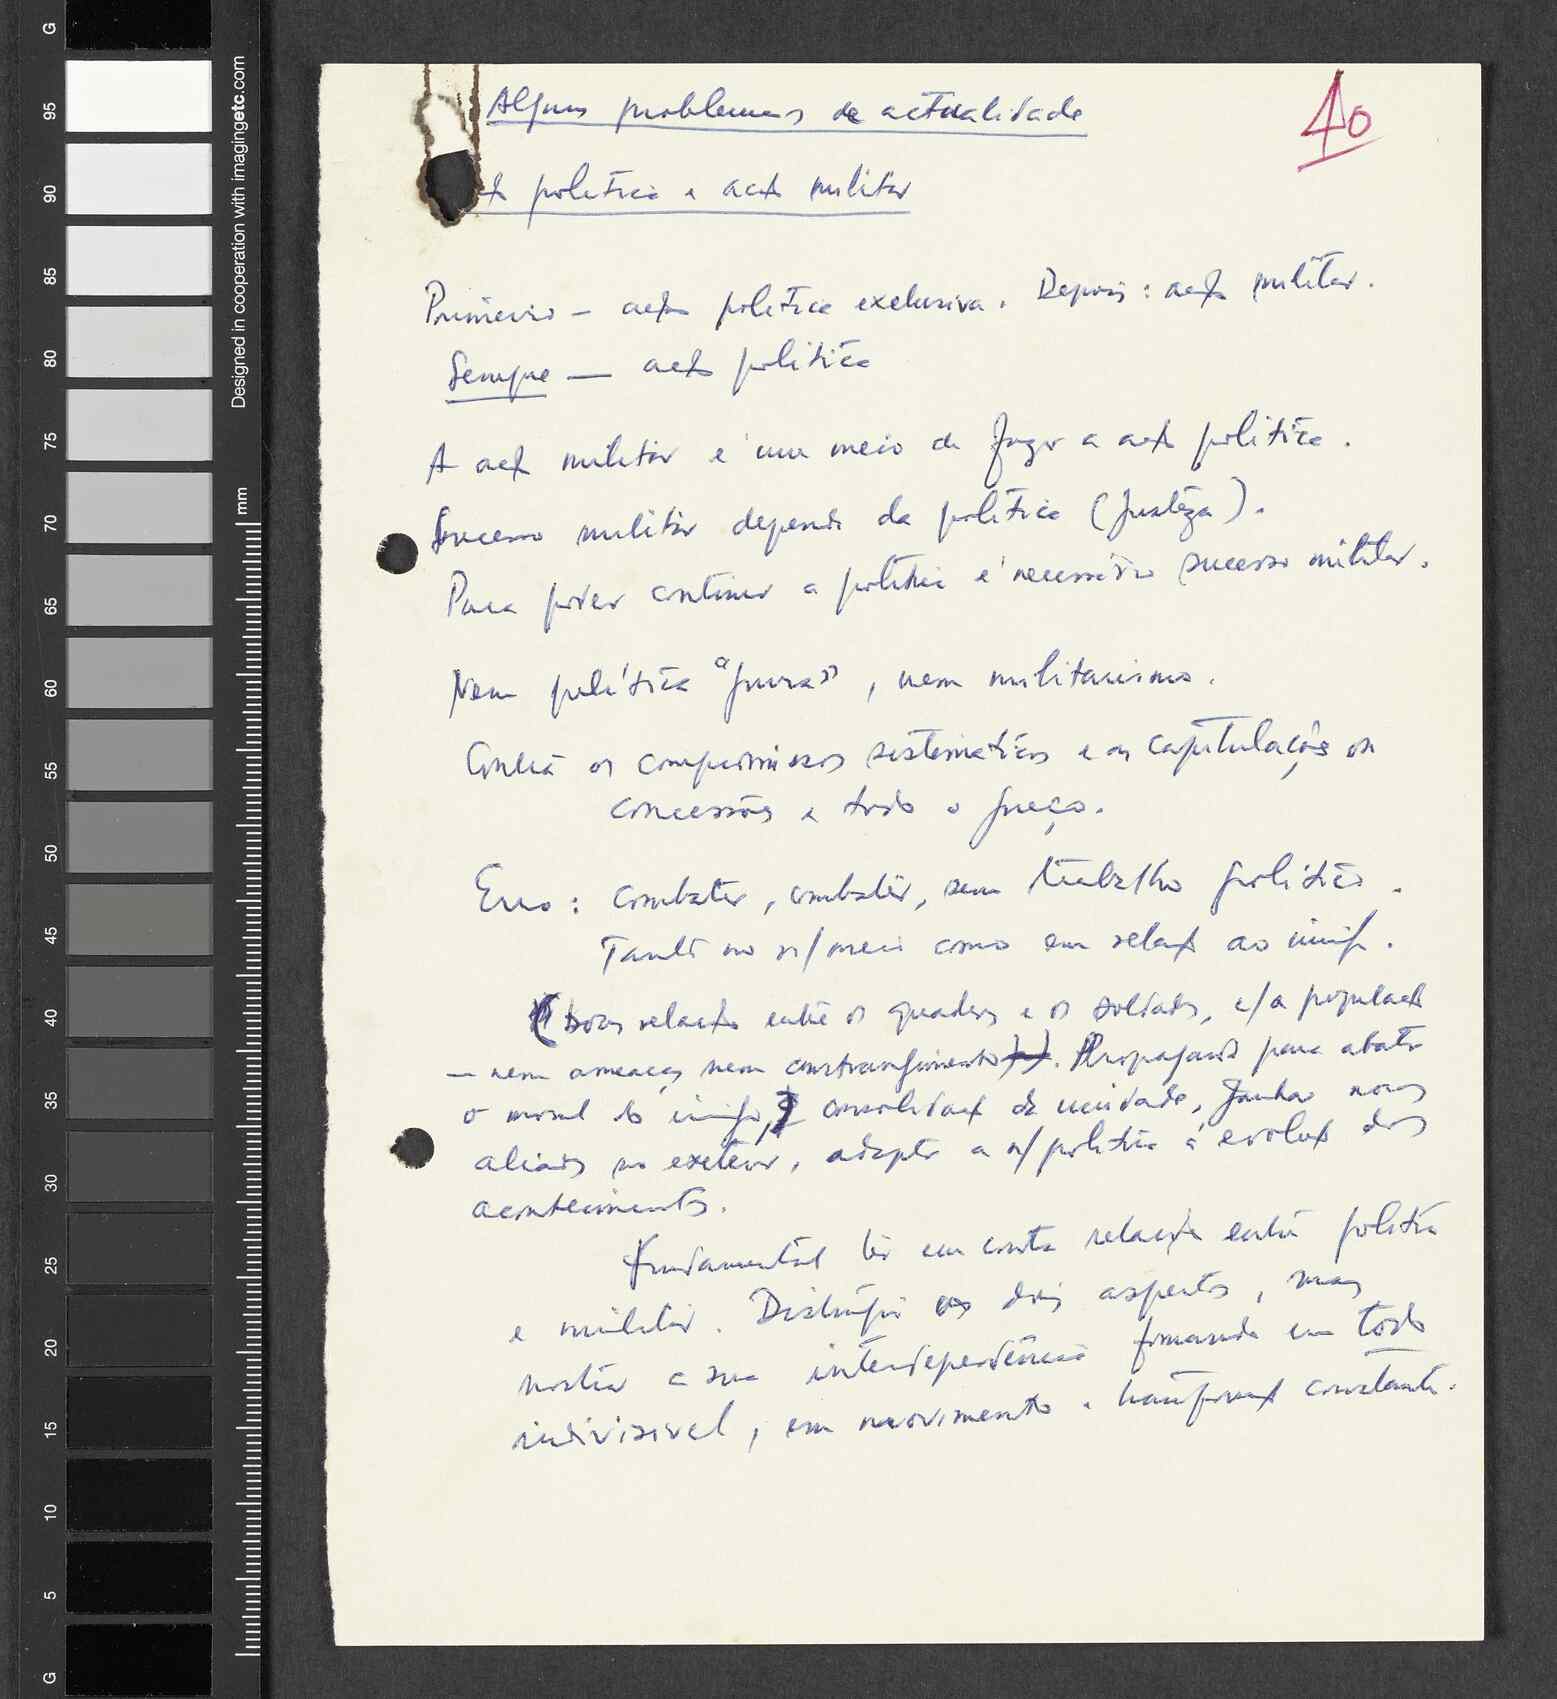 Alguns problemas de actualidade
10
política e acç militar
Primeiro — acç política exclusiva. Depois: acç militar.
Sempre — acç política
A acç militar é um meio de fazer a acç política.
Sucesso militar depende da política (justeza).
Para poder continuar a política é necessário sucesso militar.
Nem política "pura", nem militarismo.
Contra os compromissos sistemáticos e as capitulações ou
concessões a todo o preço.
Erro: combater, combater, sem trabalho político.
Tanto no n/meio como em relaç ao inimigo.
(boas relações entre os quadros e os soldados, c/a populaç
— nem ameaças nem constrangimento). Propaganda para abater
o moral do inimigo, consolidaç da unidade, ganhar novos
aliados no exterior, adaptar a n/política à evoluç dos
acontecimentos.
Fundamental ter em conta relações entre política
e militar. Distinguir os dois aspectos, mas
mostrar a sua interdependência formando um todo
indivisível, em movimento e transformaç constante.
G
95
90
85
80
75
70
65
60
55
50
45
40
35
30
25
20
15
10
5
G
Designed in cooperation with imagingetc.com
mm